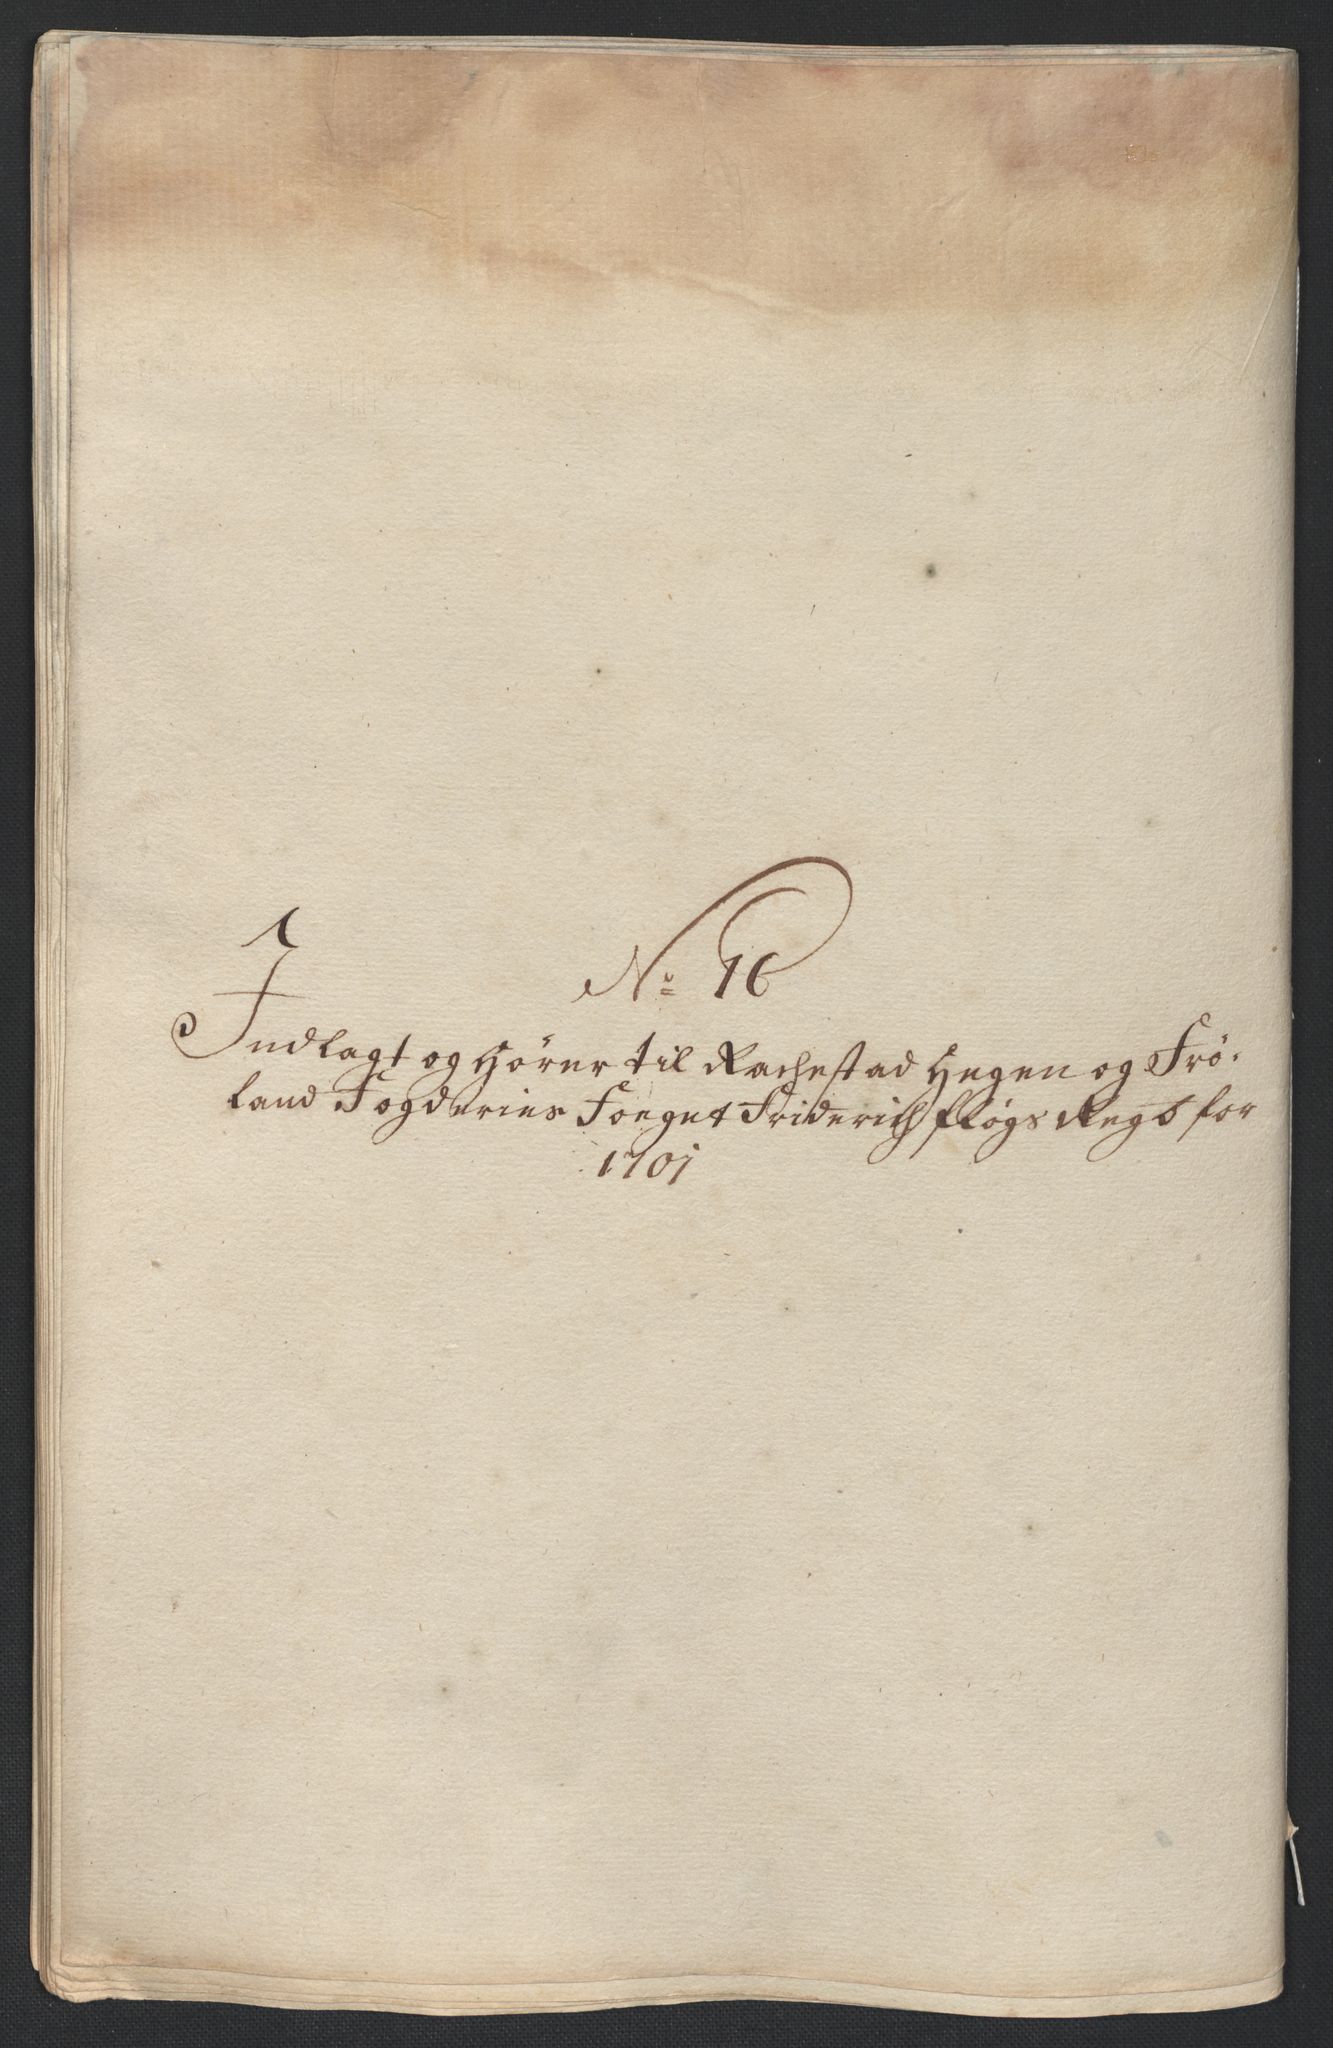 No 16
Indlagt og Hører til Rachestad Heggen og Frø-
land Fogderies Foeget Friderich Fløgs Regsb for
1701